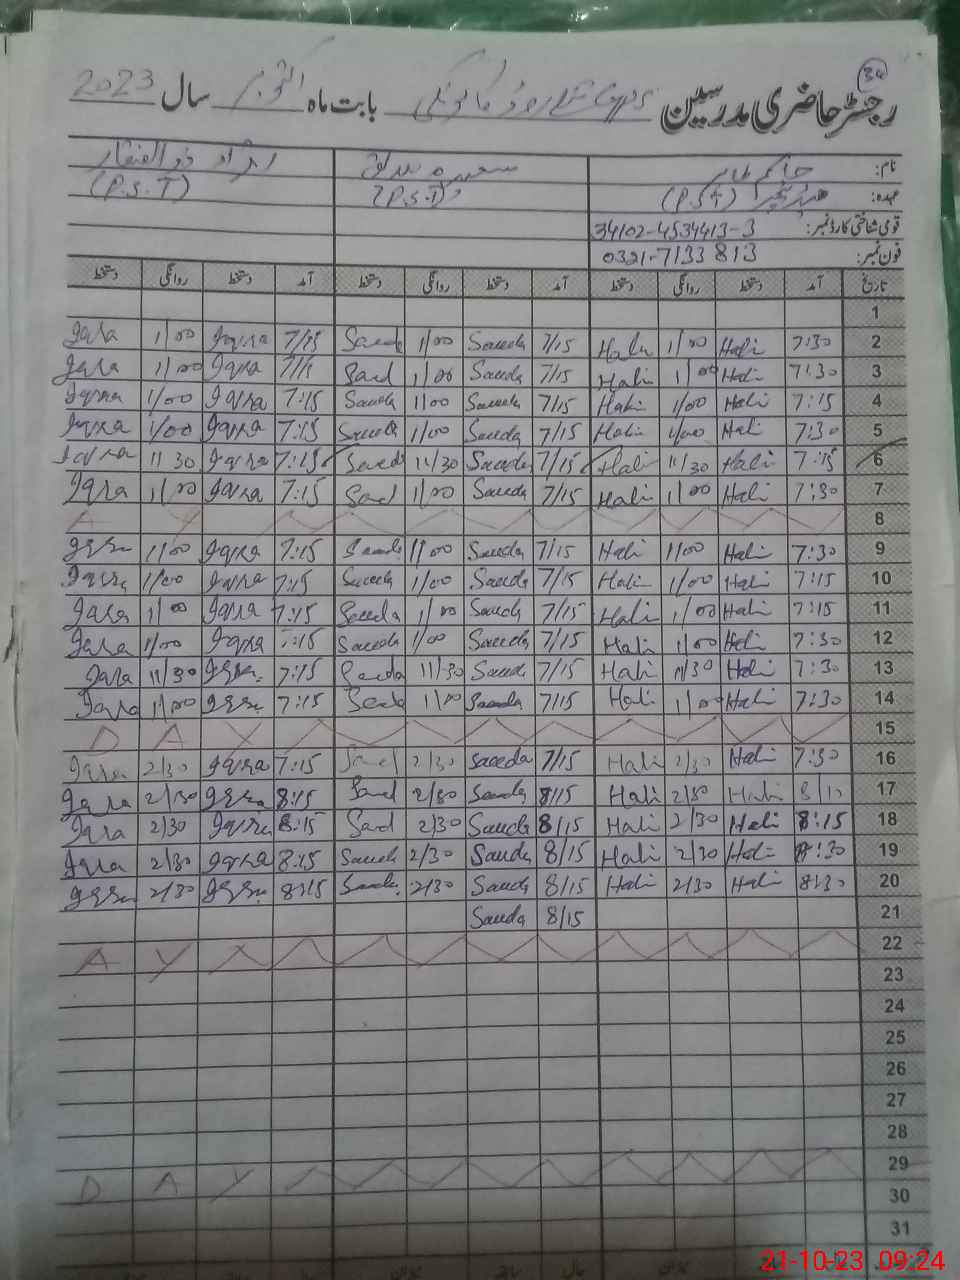 34
رجسٹر حاضری مدرسین GPS بابت ماہ اکتوبر سال 2023
نام:
عہدہ: (P.S.T) (P.S.T) (P.S.T)
قومی شناختی کارڈ نمبر: 34102-4534413-3
فون نمبر: 0321-7133813
تاریخ آمد دستخط روانگی دستخط آمد دستخط روانگی دستخط آمد دستخط روانگی دستخط
1
Iqra 1/00 Iqra 7/15 Saeda 1/00 Saeeda 7/15 Hali 1/00 Hali 7:30 2
Iqra 1/00 Iqra 7/1 Saed 1/00 Saeda 7/15 Hali 1/00 Hali 7:30 3
Iqra 1/00 Iqra 7:15 Saeda 1/00 Saeeda 7/15 Hali 1/00 Hali 7:15 4
Iqra 1/00 Iqra 7:15 Saeeda 1/00 Saeeda 7/15 Hali 1/00 Hali 7:30 5
Iqra 11 30 Iqra 7:15 Saeed 11/30 Saeeda 7/15 Hali 11/30 Hali 7:15 6
Iqra 1/00 Iqra 7:15 Saed 1/00 Saeeda 7/15 Hali 1/00 Hali 7:30 7
A Y 8
Iqra 1/00 Iqra 7:15 Saeeda 1/00 Saeeda 7/15 Hali 1/00 Hali 7:30 9
Iqra 1/00 Iqra 7:15 Saeeda 1/00 Saeeda 7/15 Hali 1/00 Hali 7:15 10
Iqra 1/00 Iqra 7:15 Saeeda 1/00 Saeeda 7/15 Hali 1/00 Hali 7:15 11
Iqra 1/00 Iqra 7:15 Saeeda 1/00 Saeeda 7/15 Hali 1/00 Hali 7:30 12
Iqra 11/30 Iqra 7:15 Saeeda 11/30 Saeed 7/15 Hali 11/30 Hali 7:30 13
Iqra 1/00 Iqra 7:15 Saeda 1/00 Saeeda 7/15 Hali 1/00 Hali 7:30 14
D A Y 15
Iqra 2/30 Iqra 7:15 Saed 2/30 Saeeda 7/15 Hali 2/30 Hali 7:30 16
Iqra 2/30 Iqra 8:15 Saed 2/30 Saeeda 8/15 Hali 2/30 Hali 8/15 17
Iqra 2/30 Iqra 8:15 Saed 2/30 Saeeda 8/15 Hali 2/30 Hali 8:15 18
Iqra 2/30 Iqra 8:15 Saeeda 2/30 Saeeda 8/15 Hali 2/30 Hali 8:30 19
Iqra 2/30 Iqra 8:15 Saeeda 2/30 Saeeda 8/15 Hali 2/30 Hali 8:30 20
Saeeda 8/15 21
A Y 22
23
24
25
26
27
28
D A Y 29
30
31
21-10-23 09:24